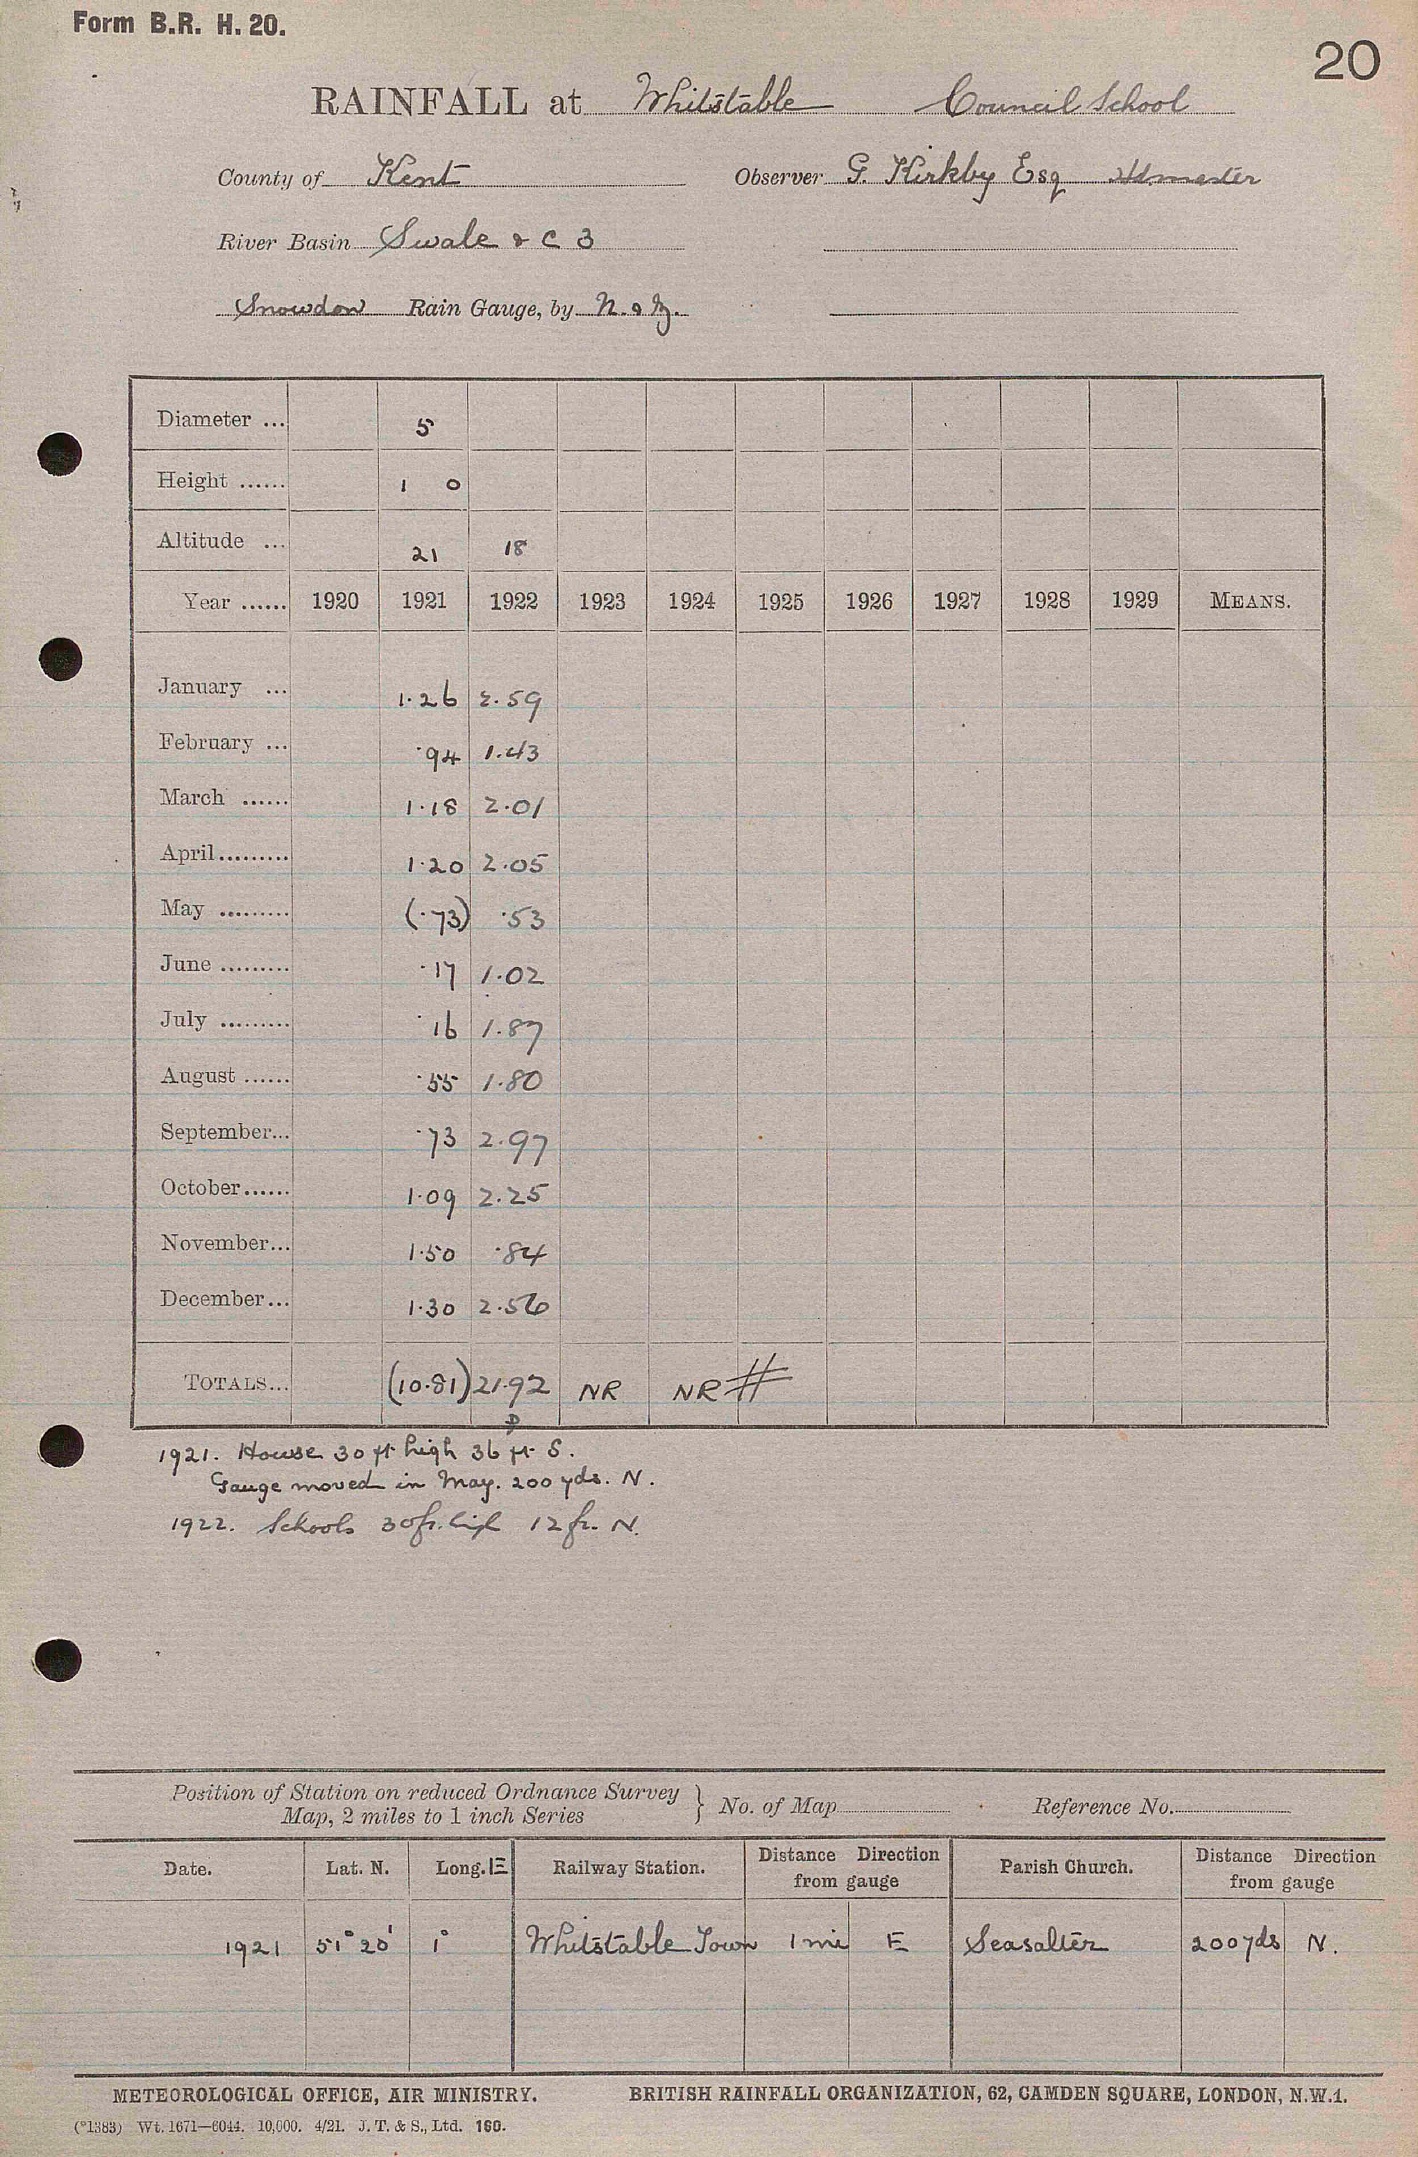 Form B.R. H. 20.
20
RAINFALL at Whitstable Council School
County of Kent Observer G. Kirkby Esq Hdmaster
River Basin Swale & C 3
Snowdon Rain Gauge, by N. & Z.
Diameter ... 5
Height ...... 1 0
Altitude ... 21 18
Year ...... 1920 1921 1922 1923 1924 1925 1926 1927 1928 1929 MEANS.
January ... 1.26 2.59
February ... .94 1.43
March ...... 1.18 2.01
April ......... 1.20 2.05
May ......... (.73) .53
June ......... .17 1.02
July ......... .16 1.87
August ...... .55 1.80
September... .73 2.97
October...... 1.09 2.25
November... 1.50 .84
December... 1.30 2.56
TOTALS... (10.81) 21.92 NR NR #
D
1921. House 30 ft high 36 ft S.
Gauge moved in May. 200 yds. N.
1922. Schools 30ft. high 12 ft. N.
Position of Station on reduced Ordnance Survey
Map, 2 miles to 1 inch Series } No. of Map Reference No.
Date. Lat. N. Long. E Railway Station. Distance Direction from gauge Parish Church. Distance Direction from gauge
1921 51° 20' 1° Whitstable Town 1 mi E Seasalter 200 yds N.
METEOROLOGICAL OFFICE, AIR MINISTRY. BRITISH RAINFALL ORGANIZATION, 62, CAMDEN SQUARE, LONDON, N.W.1.
(*1383) Wt. 1671—6044. 10,000. 4/21. J. T. & S., Ltd. 160.